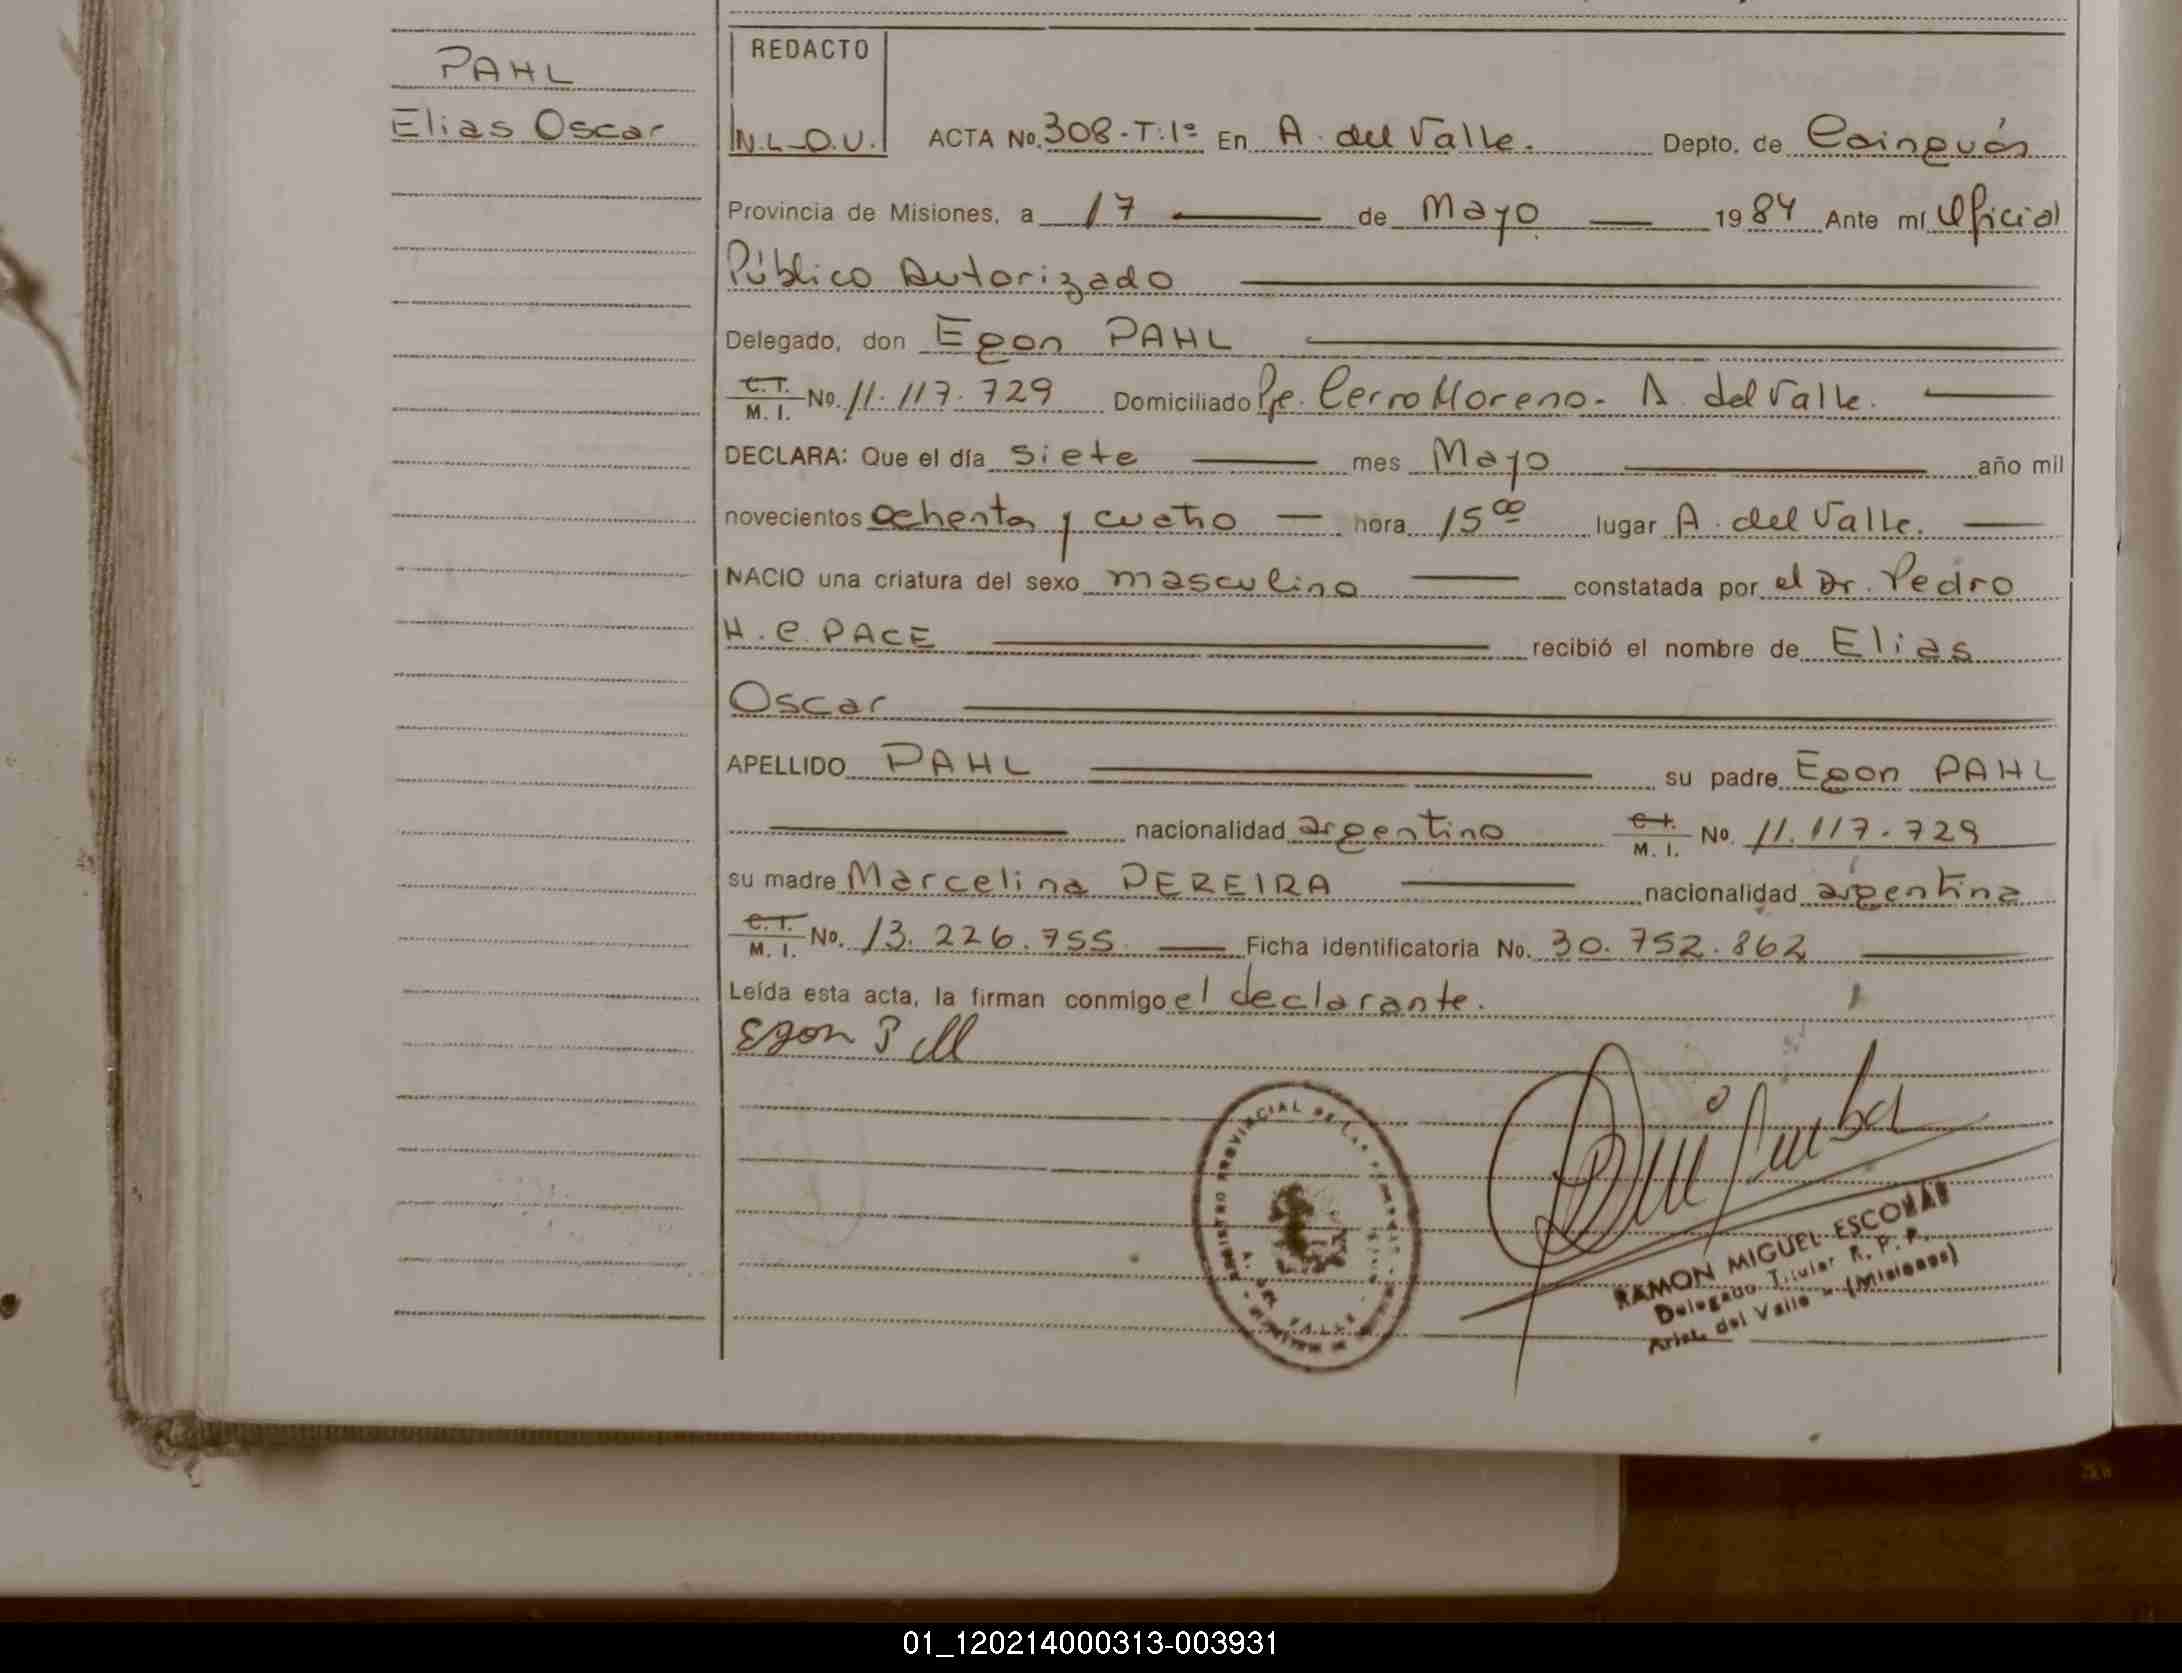 PAHL
Elias Oscar
REDACTO
N.L.O.U.
ACTA No. 308-T:1º En A. del Valle. Depto. de Cainguás
Provincia de Misiones, a 17 de Mayo 1984 Ante mí Oficial
Público Autorizado
Delegado, don Egon PAHL
C.I. M. I. No. 11.117.729 Domiciliado Pje. Cerro Moreno - A. del Valle.
DECLARA: Que el día siete mes Mayo año mil
novecientos ochenta y cuatro hora 15 00 lugar A. del Valle.
NACIO una criatura del sexo masculino constatada por el Dr. Pedro
H. C. PACE recibió el nombre de Elias
Oscar
APELLIDO PAHL su padre Egon PAHL
nacionalidad argentino C.I. M. I. No. 11.117.729
su madre Marcelina PEREIRA nacionalidad argentina
C.I. M. I. No. 13.226.755 Ficha identificatoria No. 30.752.862
Leída esta acta, la firman conmigo el declarante.
Egon
PROVINCIAL DE LAS
A. DEL VALLE
RAMON MIGUEL ESCOBAR
Delegado Titular R. P. P.
Arist. del Valle - (Misiones)
01_120214000313-003931